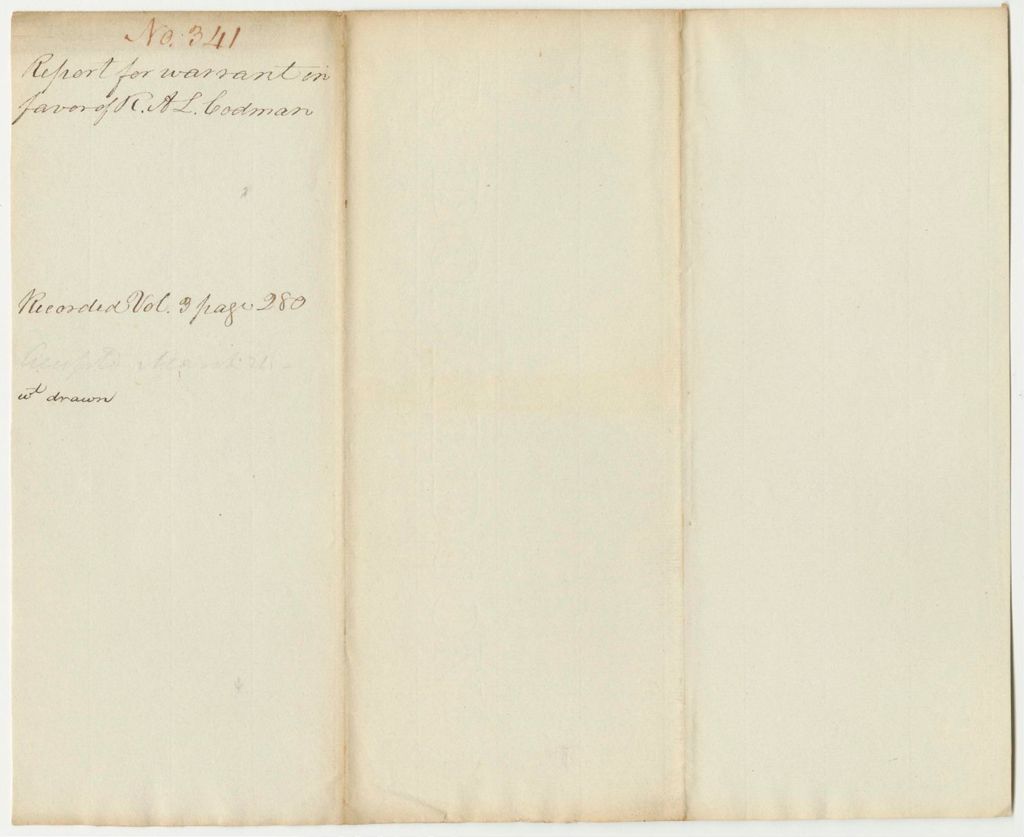 No. 341
Report for warrant in
favor of R. A L. Codman
Recorded Vol. 3 page 280
wt drawn